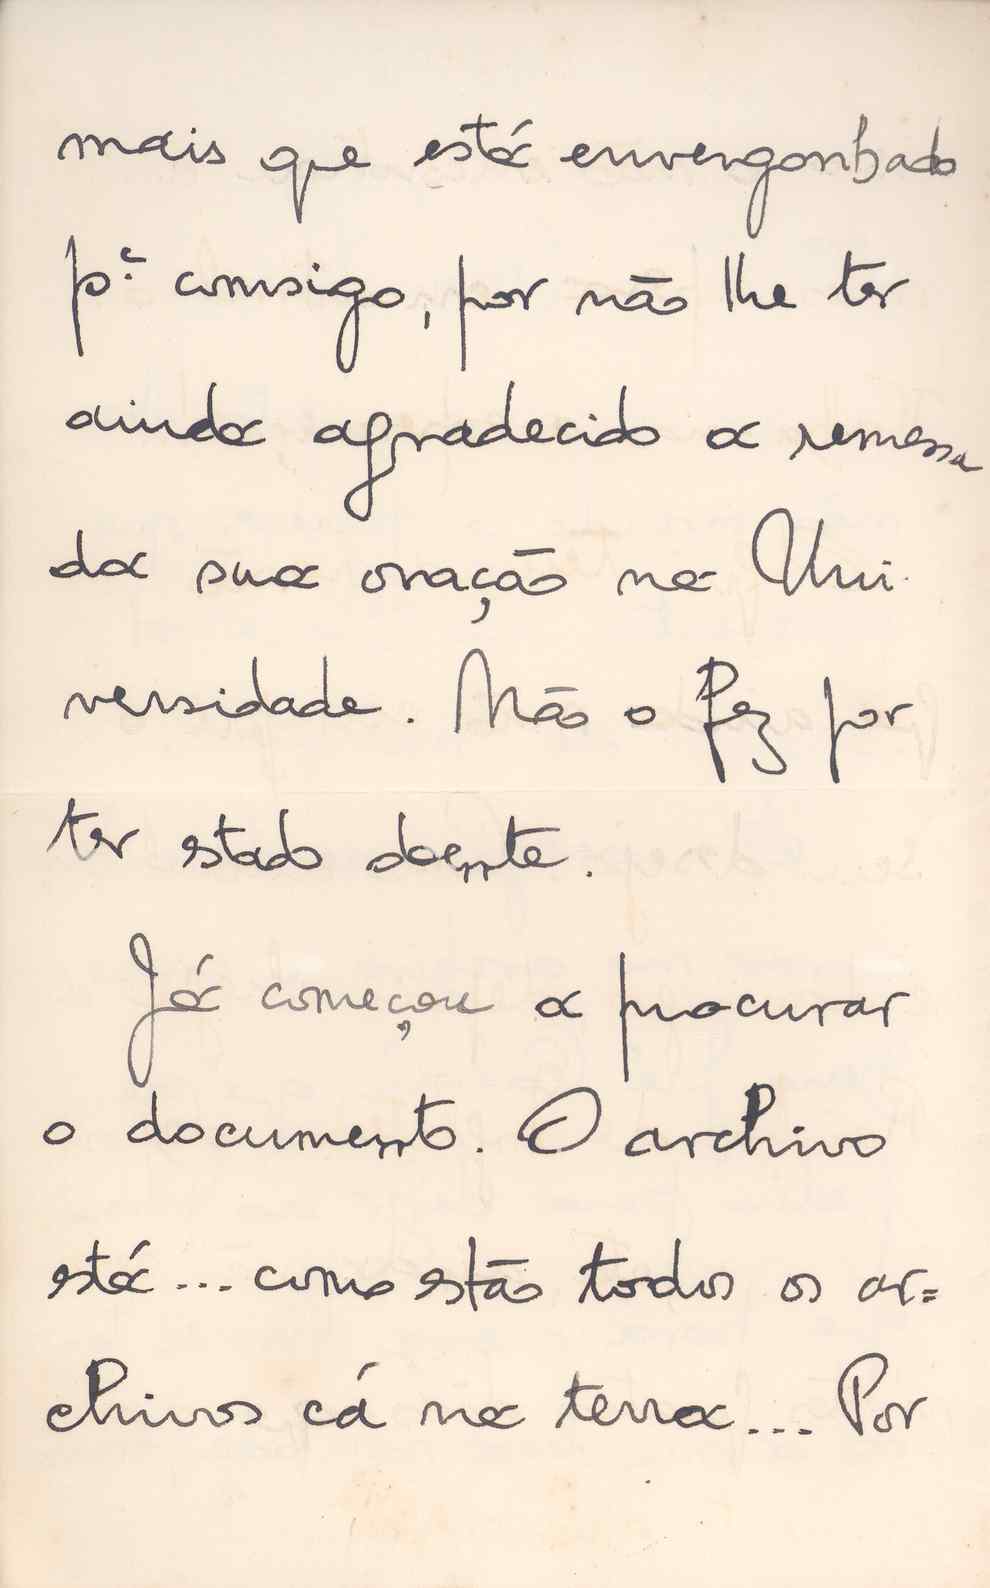 mais que está envergonhado
p.ª comsigo, por não lhe ter
ainda agradecido a remessa
da sua oração na Uni-
versidade. Não o fez por
ter estado doente.
Já começou a procurar
o documento. O archivo
está... como estão todos os ar=
chivos cá na terra... Por